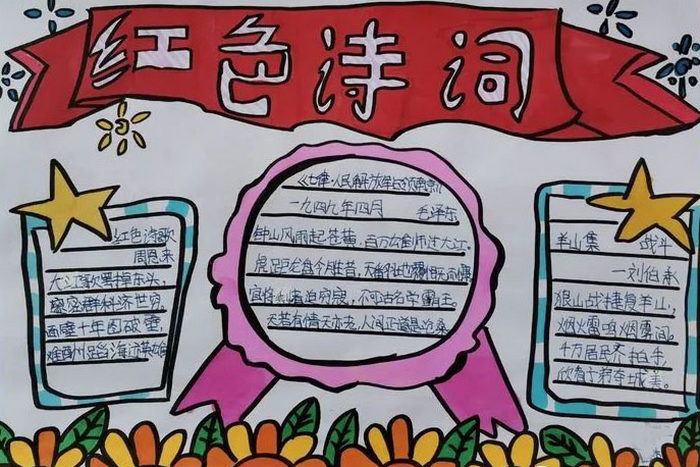 红色诗词
红色诗歌
周恩来
大江歌罢掉头东,
邃密群科济世穷,
面壁十年图破壁,
难酬蹈海亦英雄
《七律·人民解放军占领南京》
一九四九年四月 毛泽东
钟山风雨起苍黄,百万雄师过大江。
虎踞龙盘今胜昔,天翻地覆慨而慷
宜将剩勇追穷寇,不可沽名学霸王。
天若有情天亦老,人间正道是沧桑
羊山集 战斗
一刘伯承
狼山战捷复羊山,
炮火雷鸣烟雾间。
千万居民齐拍手,
欣看子弟夺城关。